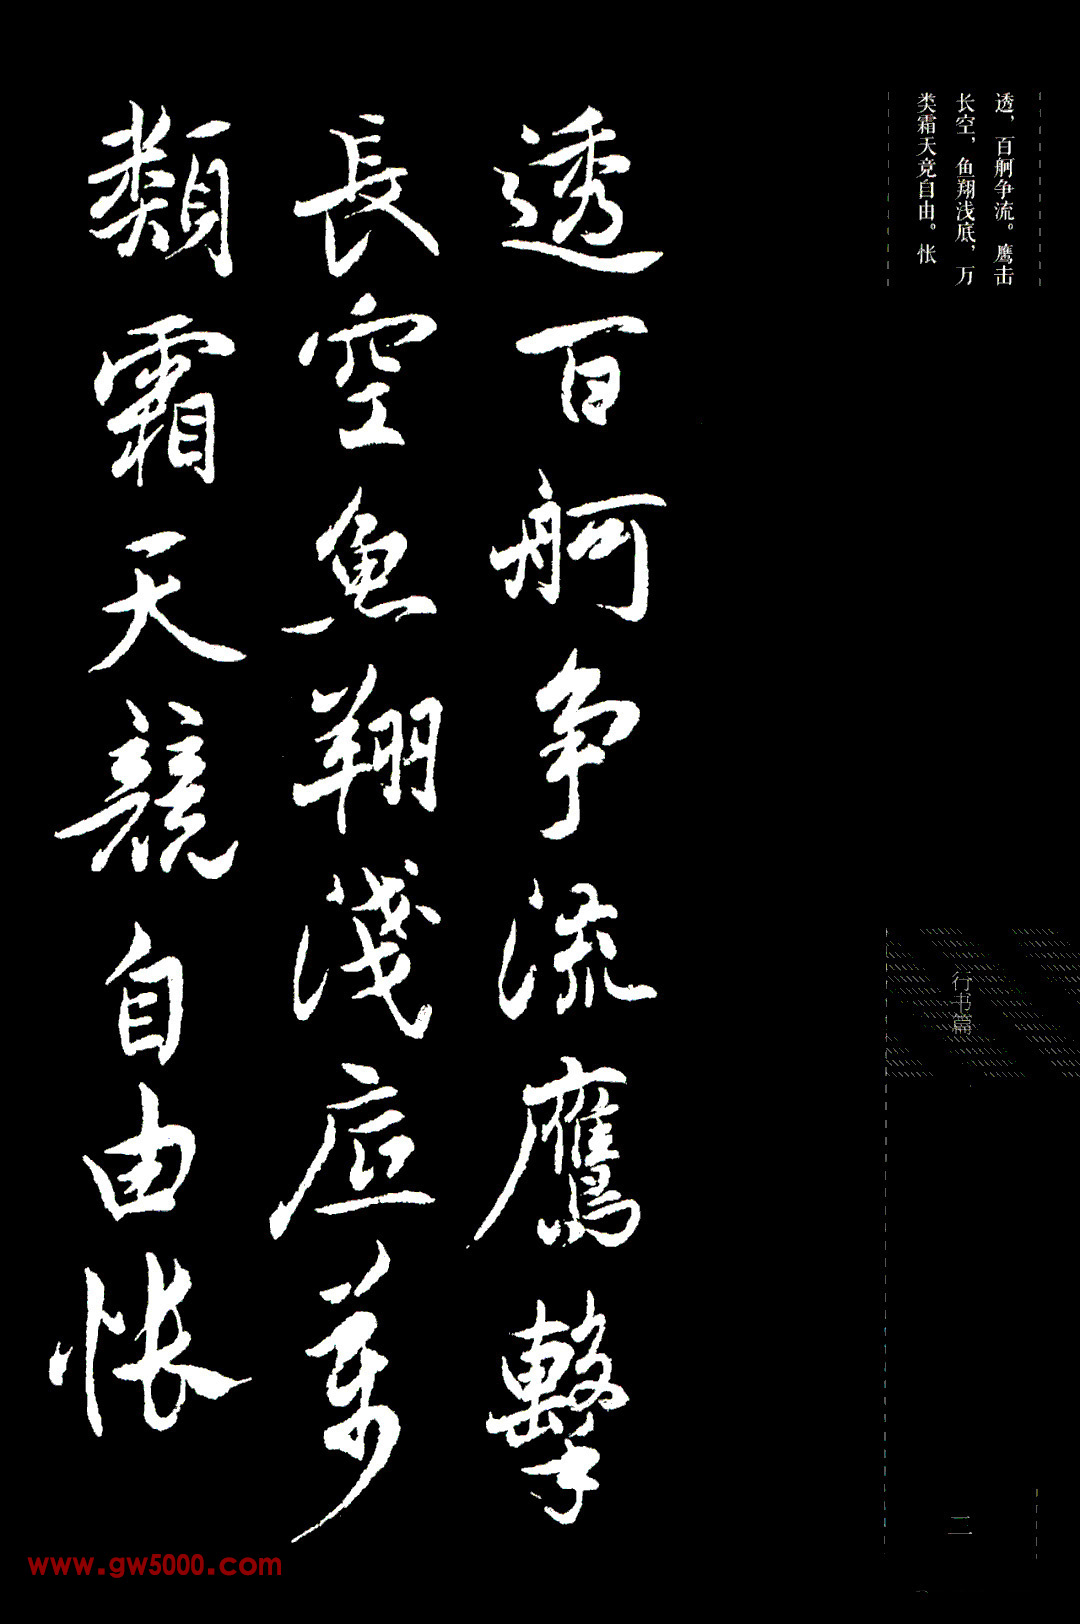 透，百舸争流。鹰击
长空，鱼翔浅底，万
类霜天竞自由。怅
透百舸争流鷹擊
長空魚翔淺底萬
類霜天競自由悵
行书篇
www.gw5000.com